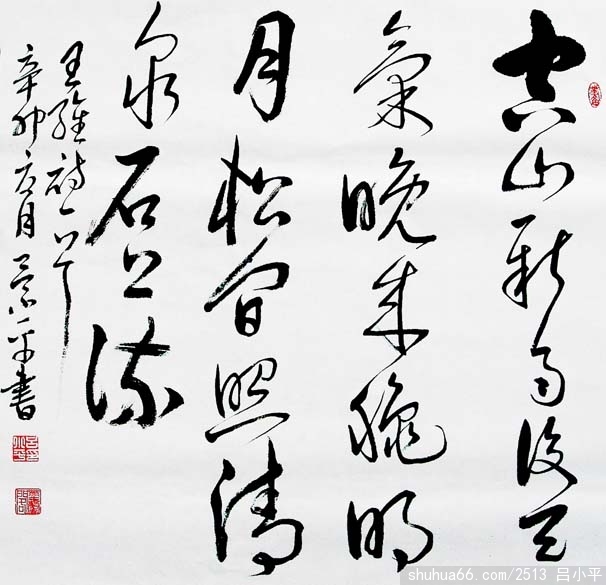 空山新雨後天
氣晚來秋明
月松間照清
泉石上流
王維詩一首
辛卯六月 平書
shuhua66.com/2513 吕小平